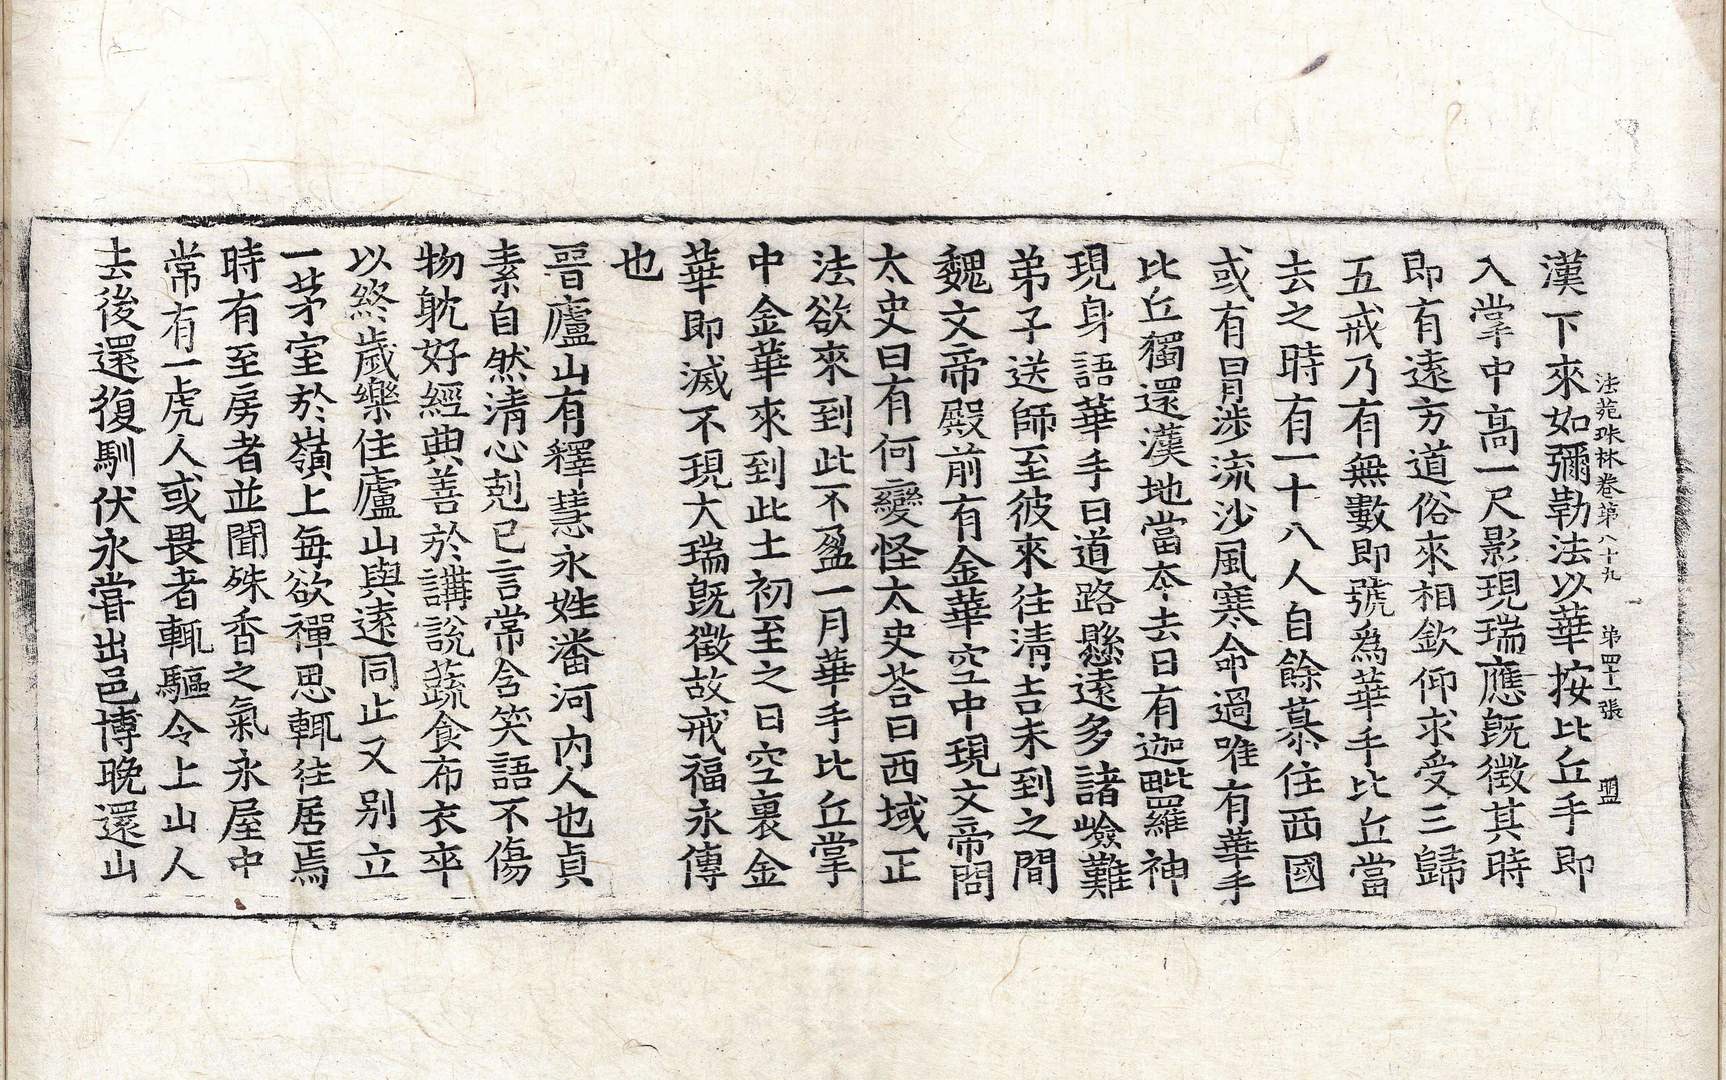 法苑珠林卷第八十九 第四十一張 盟
漢下來如彌勒法以華按比丘手即
入掌中高一尺影現瑞應旣徵其時
即有遠方道俗來相欽仰求受三歸
五戒乃有無數即號爲華手比丘當
去之時有一十八人自餘慕住西國
或有冒涉流沙風寒命過唯有華手
比丘獨還漢地當夲去日有迦毗羅神
現身語華手曰道路懸遠多諸嶮難
弟子送師至彼來往淸吉未到之間
魏文帝殿前有金華空中現文帝問
太史曰有何變怪太史荅曰西域正
法欲來到此不盈一月華手比丘掌
中金華來到此土初至之日空裏金
華即滅不現大瑞旣徵故戒福永傳
也
晉廬山有釋慧永姓潘河內人也貞
素自然淸心剋己言常含笑語不傷
物躭好經典善於講說蔬食布衣卒
以終歲樂住廬山與遠同止又別立
一茅室於嶺上每欲禪思輒往居焉
時有至房者並聞殊香之氣永屋中
常有一虎人或畏者輒驅令上山人
去後還復馴伏永嘗出邑博晚還山